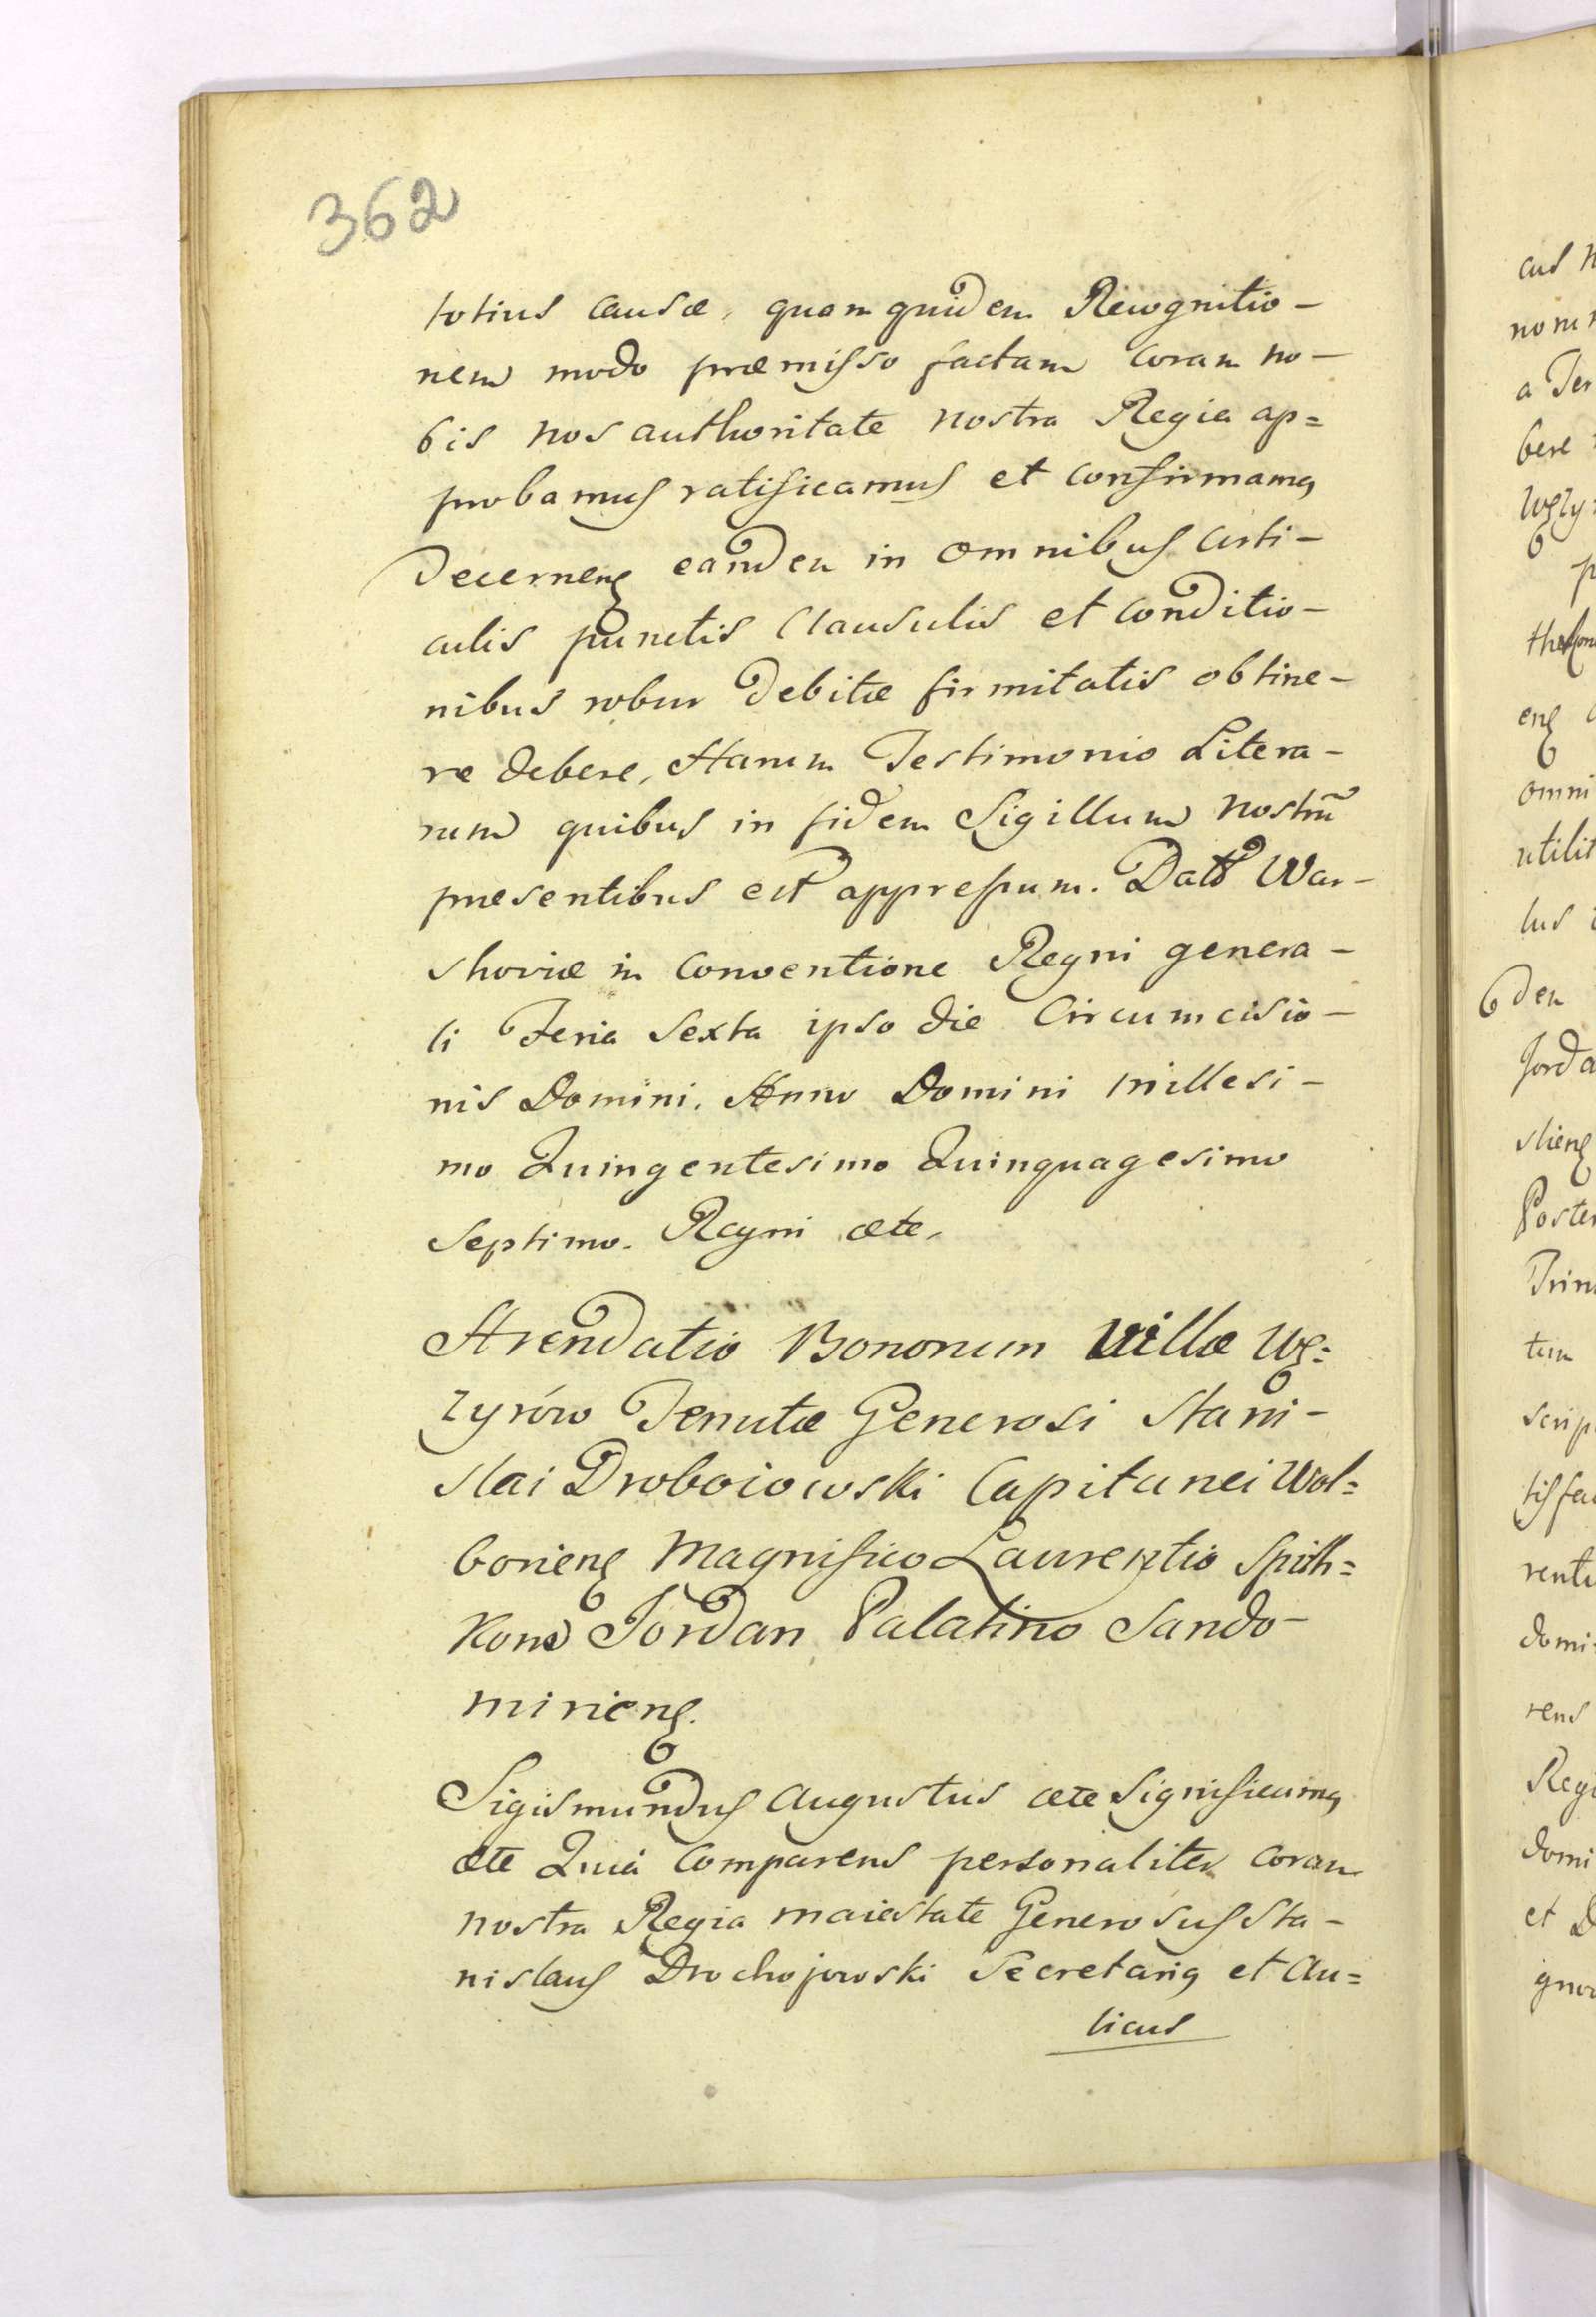 362
totius causæ, quam quidem Recognitio-
nem modo præmisso factam coram no-
bis nos authoritate nostra Regia ap=
probamus ratificamus et confirmamꝰ
Decernenꝭ eandem in omnibus Arti-
culis punctis Clausulis et conditio-
nibus robur debitæ firmitatis obtine-
re debere, Harum Testimonio Litera-
rum quibus in fidem Sigillum nostrũ
præsentibus est appressum. Datt War-
shoviæ in Conventione Regni genera-
li Feria Sexta ipso die Circumcisio-
nis Domini, Anno Domini millesi-
mo Quingentesimo Quinquagesimo
Septimo. Regni ætc,
Arendatio Bonorum villæ Wę=
zyrów Tenutæ Generosi Stani-
slai Droboiowski Capitanei Wol=
borienꝭ Magnifico Laurentio Spith=
kond Jordan Palatino Sando-
mirienꝭ.
Sigismundus Augustus ætc Significamꝰ
ætc Quia Comparens personaliter coram
nostra Regia maiestate Generosus Sta-
nislaus Drochojowski Secretariꝰ et Au=
licus
cus
a Ter
bere
enꝭ
omni
utilit
lus
dem
Jorda
slienꝭ
Poster
tum
scrip
domi
rens
Regi
domi
et D